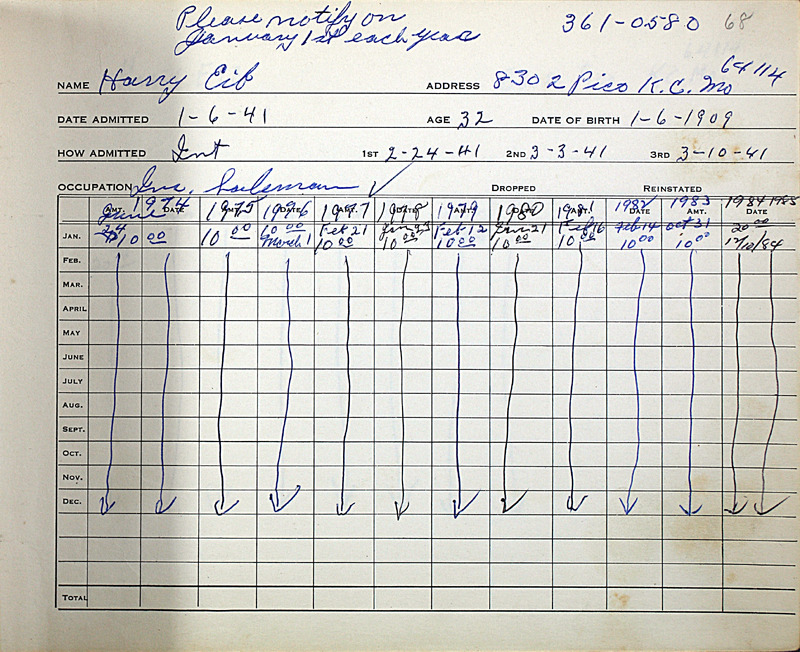 Please notify on
January 1st each year
361-0580 68
NAME Harry Eib ADDRESS 8302 Pico K.C. Mo 64114
DATE ADMITTED 1-6-41 AGE 32 DATE OF BIRTH 1-6-1909
HOW ADMITTED Int 1ST 2-24-41 2ND 3-3-41 3RD 3-10-41
OCCUPATION Ins. Salesman DROPPED REINSTATED
1974 1975 1976 1977 1978 1979 1980 1981 1982 1983 1984 1985
AMT. DATE AMT. DATE AMT. DATE AMT. DATE AMT. DATE AMT. DATE
June 24 10 00 10 00 10 00 Feb 21 Jan 23 Feb 12 Jan 21 Feb 16 Feb 14 Oct 31 20 00
JAN. March 1 10 00 10 00 10 00 10 00 10 00 10 00 10 00 12/10/84
FEB.
MAR.
APRIL
MAY
JUNE
JULY
AUG.
SEPT.
OCT.
NOV.
DEC.
TOTAL